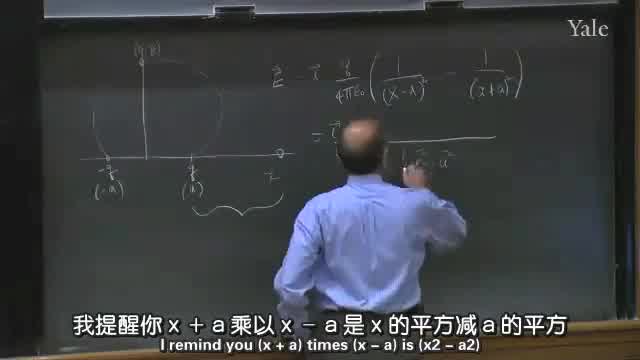 Yale
(0,y)
E = i q/4πε₀ ( 1/(x-a)² - 1/(x+a)² )
= i
x² - a²
-q q x
(-a) (a)
我提醒你 x + a 乘以 x - a 是 x 的平方减 a 的平方
I remind you (x + a) times (x - a) is (x2 - a2)